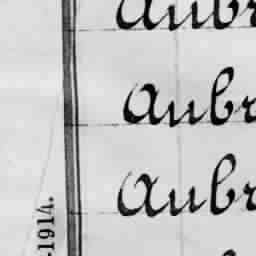 Aubr
Aubr
Aubr
-1914.